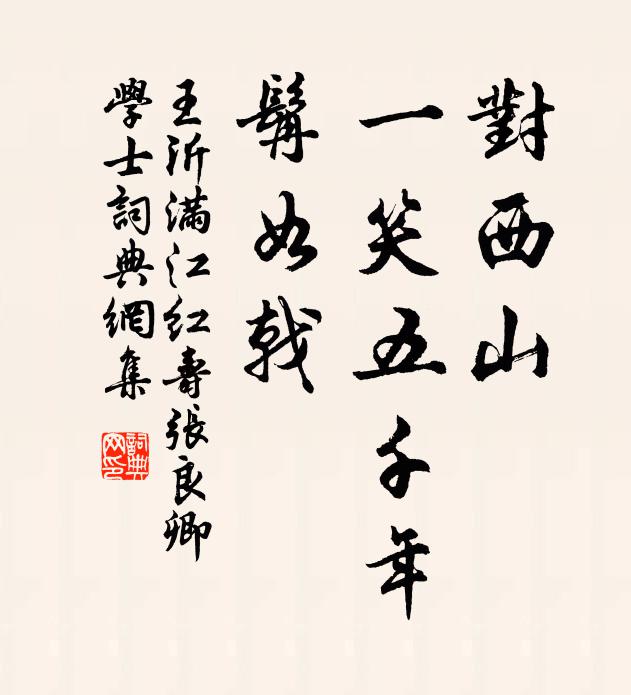 對西山
一笑五千年
髯如戟
王沂滿江紅壽張良卿
學士詞典網集
詞典
网印